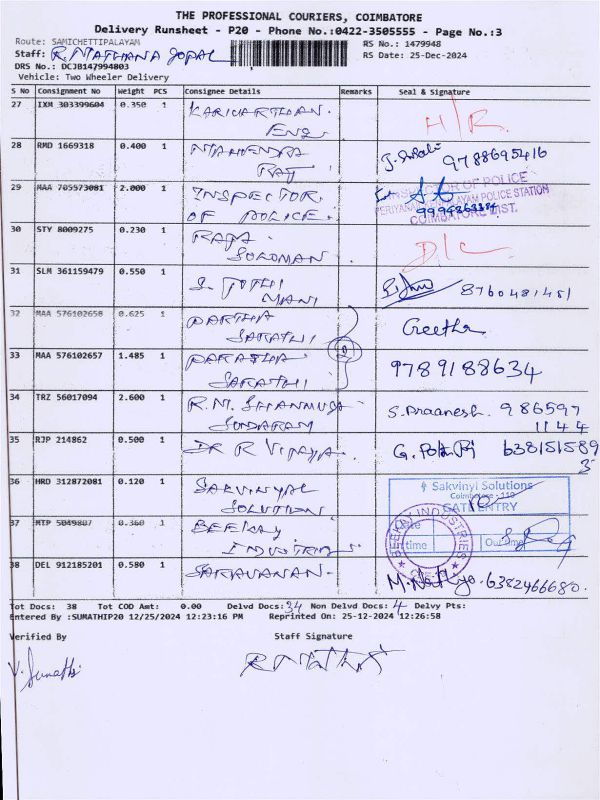 THE PROFESSIONAL COURIERS, COIMBATORE
Delivery Runsheet - P20 - Phone No.:0422-3505555 - Page No.:3
Route: SAMICHETTIPALAYAM RS No.: 1479948
Staff: R. NATHANA GOPAL RS Date: 25-Dec-2024
DRS No.: DCJB147994803
Vehicle: Two Wheeler Delivery
S No Consignment No Weight PCS Consignee Details Remarks Seal & Signature
27 IXM 303399604 0.350 1 KARIVARTHAN.
ENG. H/R.
28 RMD 1669318 0.400 1 MAHENDRA
RAJ 9788695416
29 MAA 705573081 2.000 1 INSPECTOR.
OF POLICE.
INSPECTOR OF POLICE
POLICE STATION
COIMBATORE DIST.
30 STY 8009275 0.230 1 RAJA
SOLOMAN D/C
31 SLM 361159479 0.550 1 S. JOTHI
MANI 8760481451
32 MAA 576102658 0.625 1 PARTHA
SARATHI Geetha
33 MAA 576102657 1.485 1 PARATHA
SARATHI 9789188634
34 TRZ 56017094 2.600 1 R.M. SHANMUGA
SUNDARAM S. Praanesh. 986597
1144
35 RJP 214862 0.500 1 DR R VIJAYA. 638151589
3
36 HRD 312872081 0.120 1 SAKVINYAL
SOLUTION
Sakvinyi Solutions
Coimbatore - 119
GATE ENTRY
37 MTP 5049807 0.360 1 BEEKAY
INDUSTRIES
time Out time
BEEKAY INDUSTRIES
38 DEL 912185201 0.580 1 SARAVANAN. 6382466680.
Tot Docs: 38 Tot COD Amt: 0.00 Delvd Docs: 34 Non Delvd Docs: 4 Delvy Pts:
Entered By :SUMATHIP20 12/25/2024 12:23:16 PM Reprinted On: 25-12-2024 12:26:58
Verified By Staff Signature
V. Sumathi